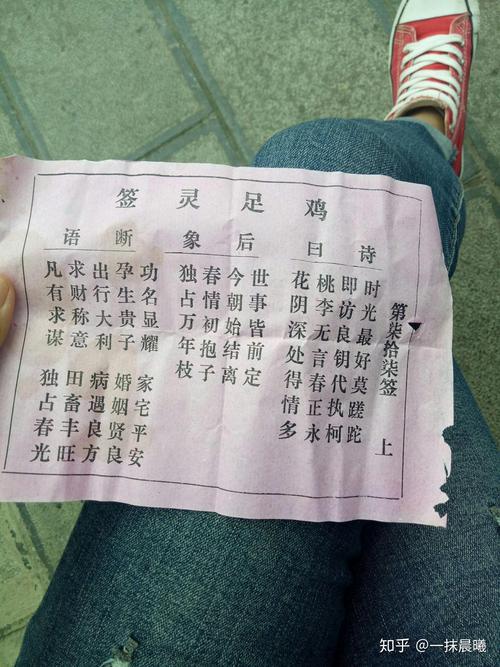 鸡足灵签
第柒拾柒签 上
诗曰
时光最好莫蹉跎
即访良钥代执柯
桃李无言春正永
花阴深处得情多
后象
世事皆前定
今朝始结离
春情初抱子
独占万年枝
断语
功名显耀 家宅平安
孕生贵子 婚姻贤良
出行大利 病遇良方
求财称意 田畜丰旺
凡有求谋 独占春光
知乎 @一抹晨曦